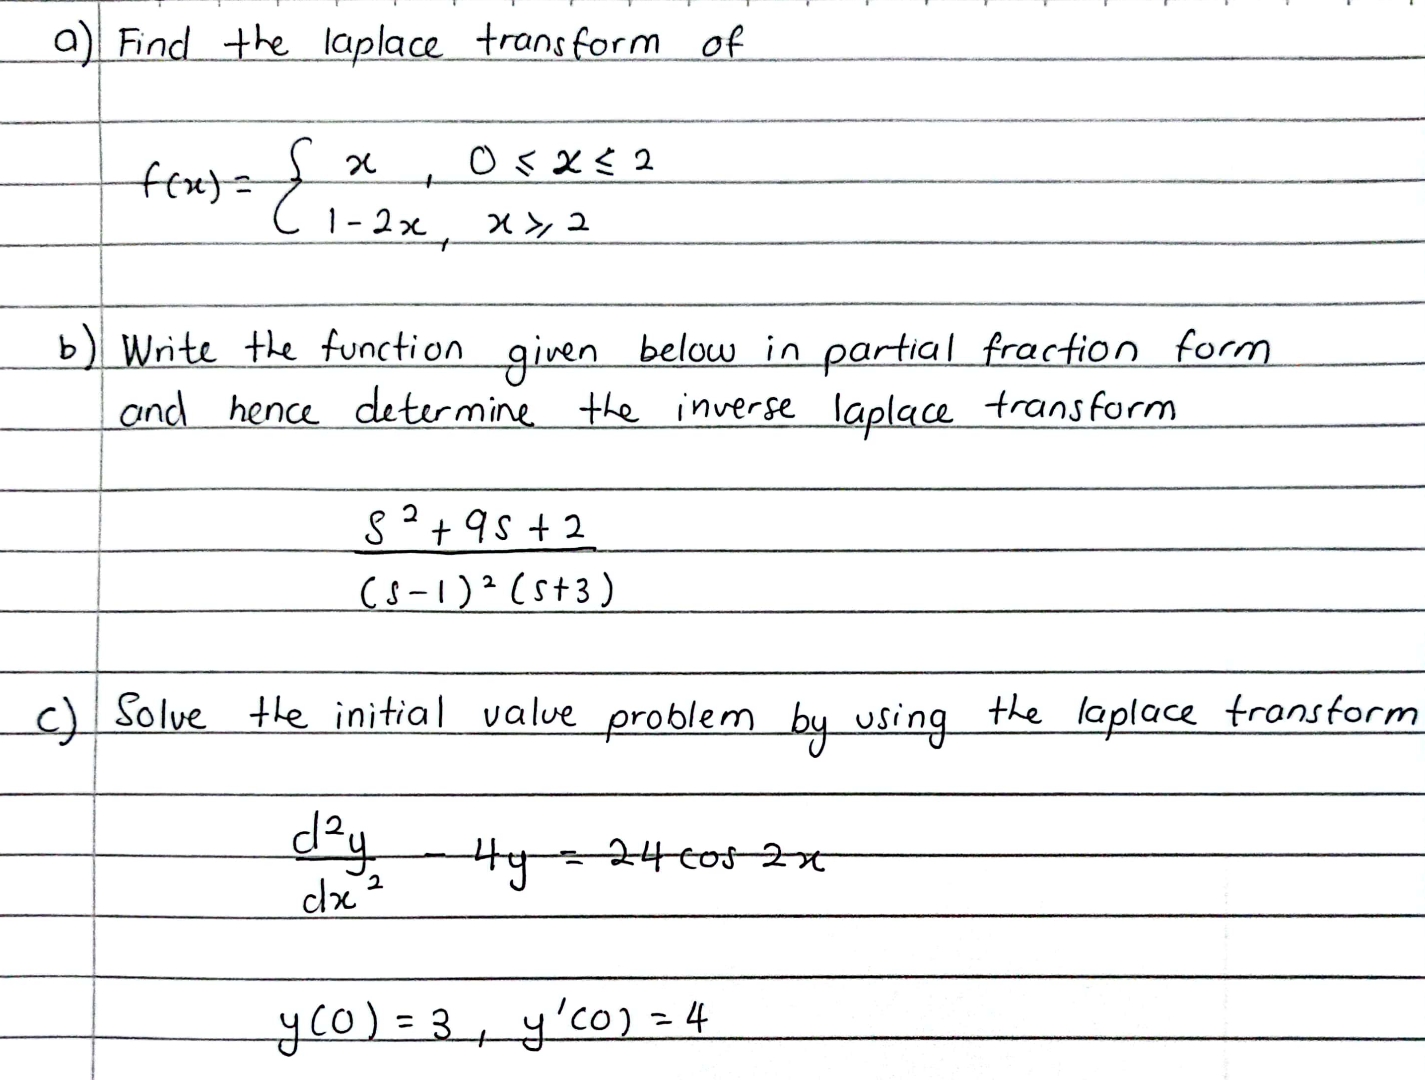 a) Find the laplace transform of
f(x) = { x , 0 ≤ x ≤ 2
1 - 2x , x ≥ 2
b) Write the function given below in partial fraction form
and hence determine the inverse laplace transform
s² + 9s + 2
(s-1)² (s+3)
c) Solve the initial value problem by using the laplace transform
d²y/dx² - 4y = 24 cos 2x
y(0) = 3 , y'(0) = 4